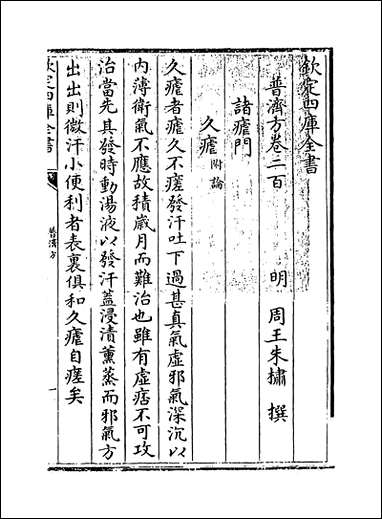 欽定四庫全書
普濟方卷二百
明　周王朱橚　撰
諸瘧門
久瘧附論
久瘧者瘧久不瘥發汗吐下過甚真氣虛邪氣深沉以
内薄衛氣不應故積嵗月而難治也雖有虛痞不可攻
治當先其發時動湯液以發汗蓋浸漬薫蒸而邪氣方
出出則微汗小便利者表裏俱和久瘧自瘥矣
欽定四庫全書
普濟方
一